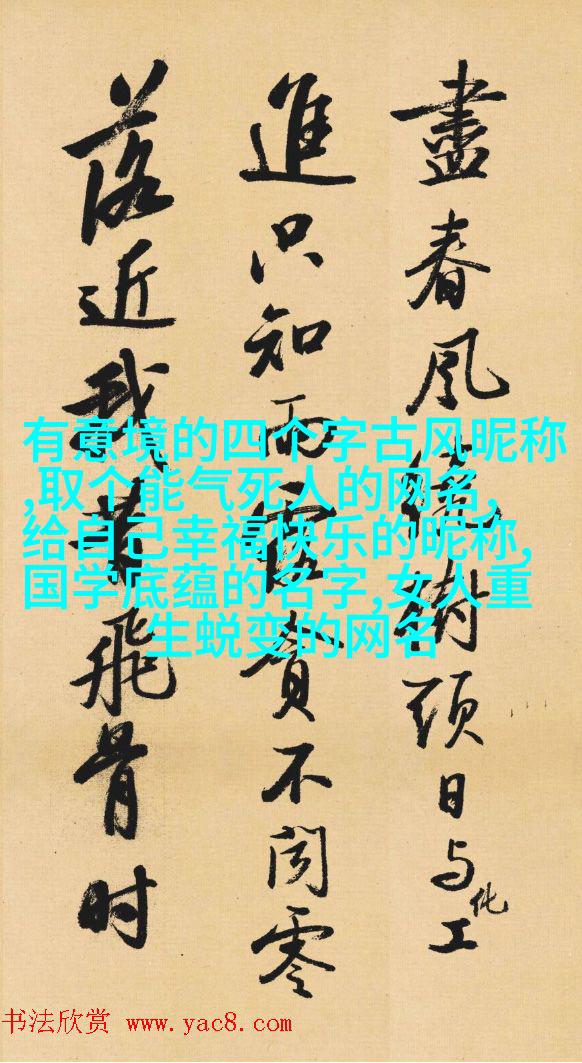 盡春風繞樹頭日与化工
進只知雨露貪不聞零
落近我葉飛骨时
有意境的四个字古风昵称
,取个能气死人的网名,
给自己幸福快乐的昵称,
国学底蕴的名字,女人重
生蜕变的网名
书法欣赏 www.yac8.com